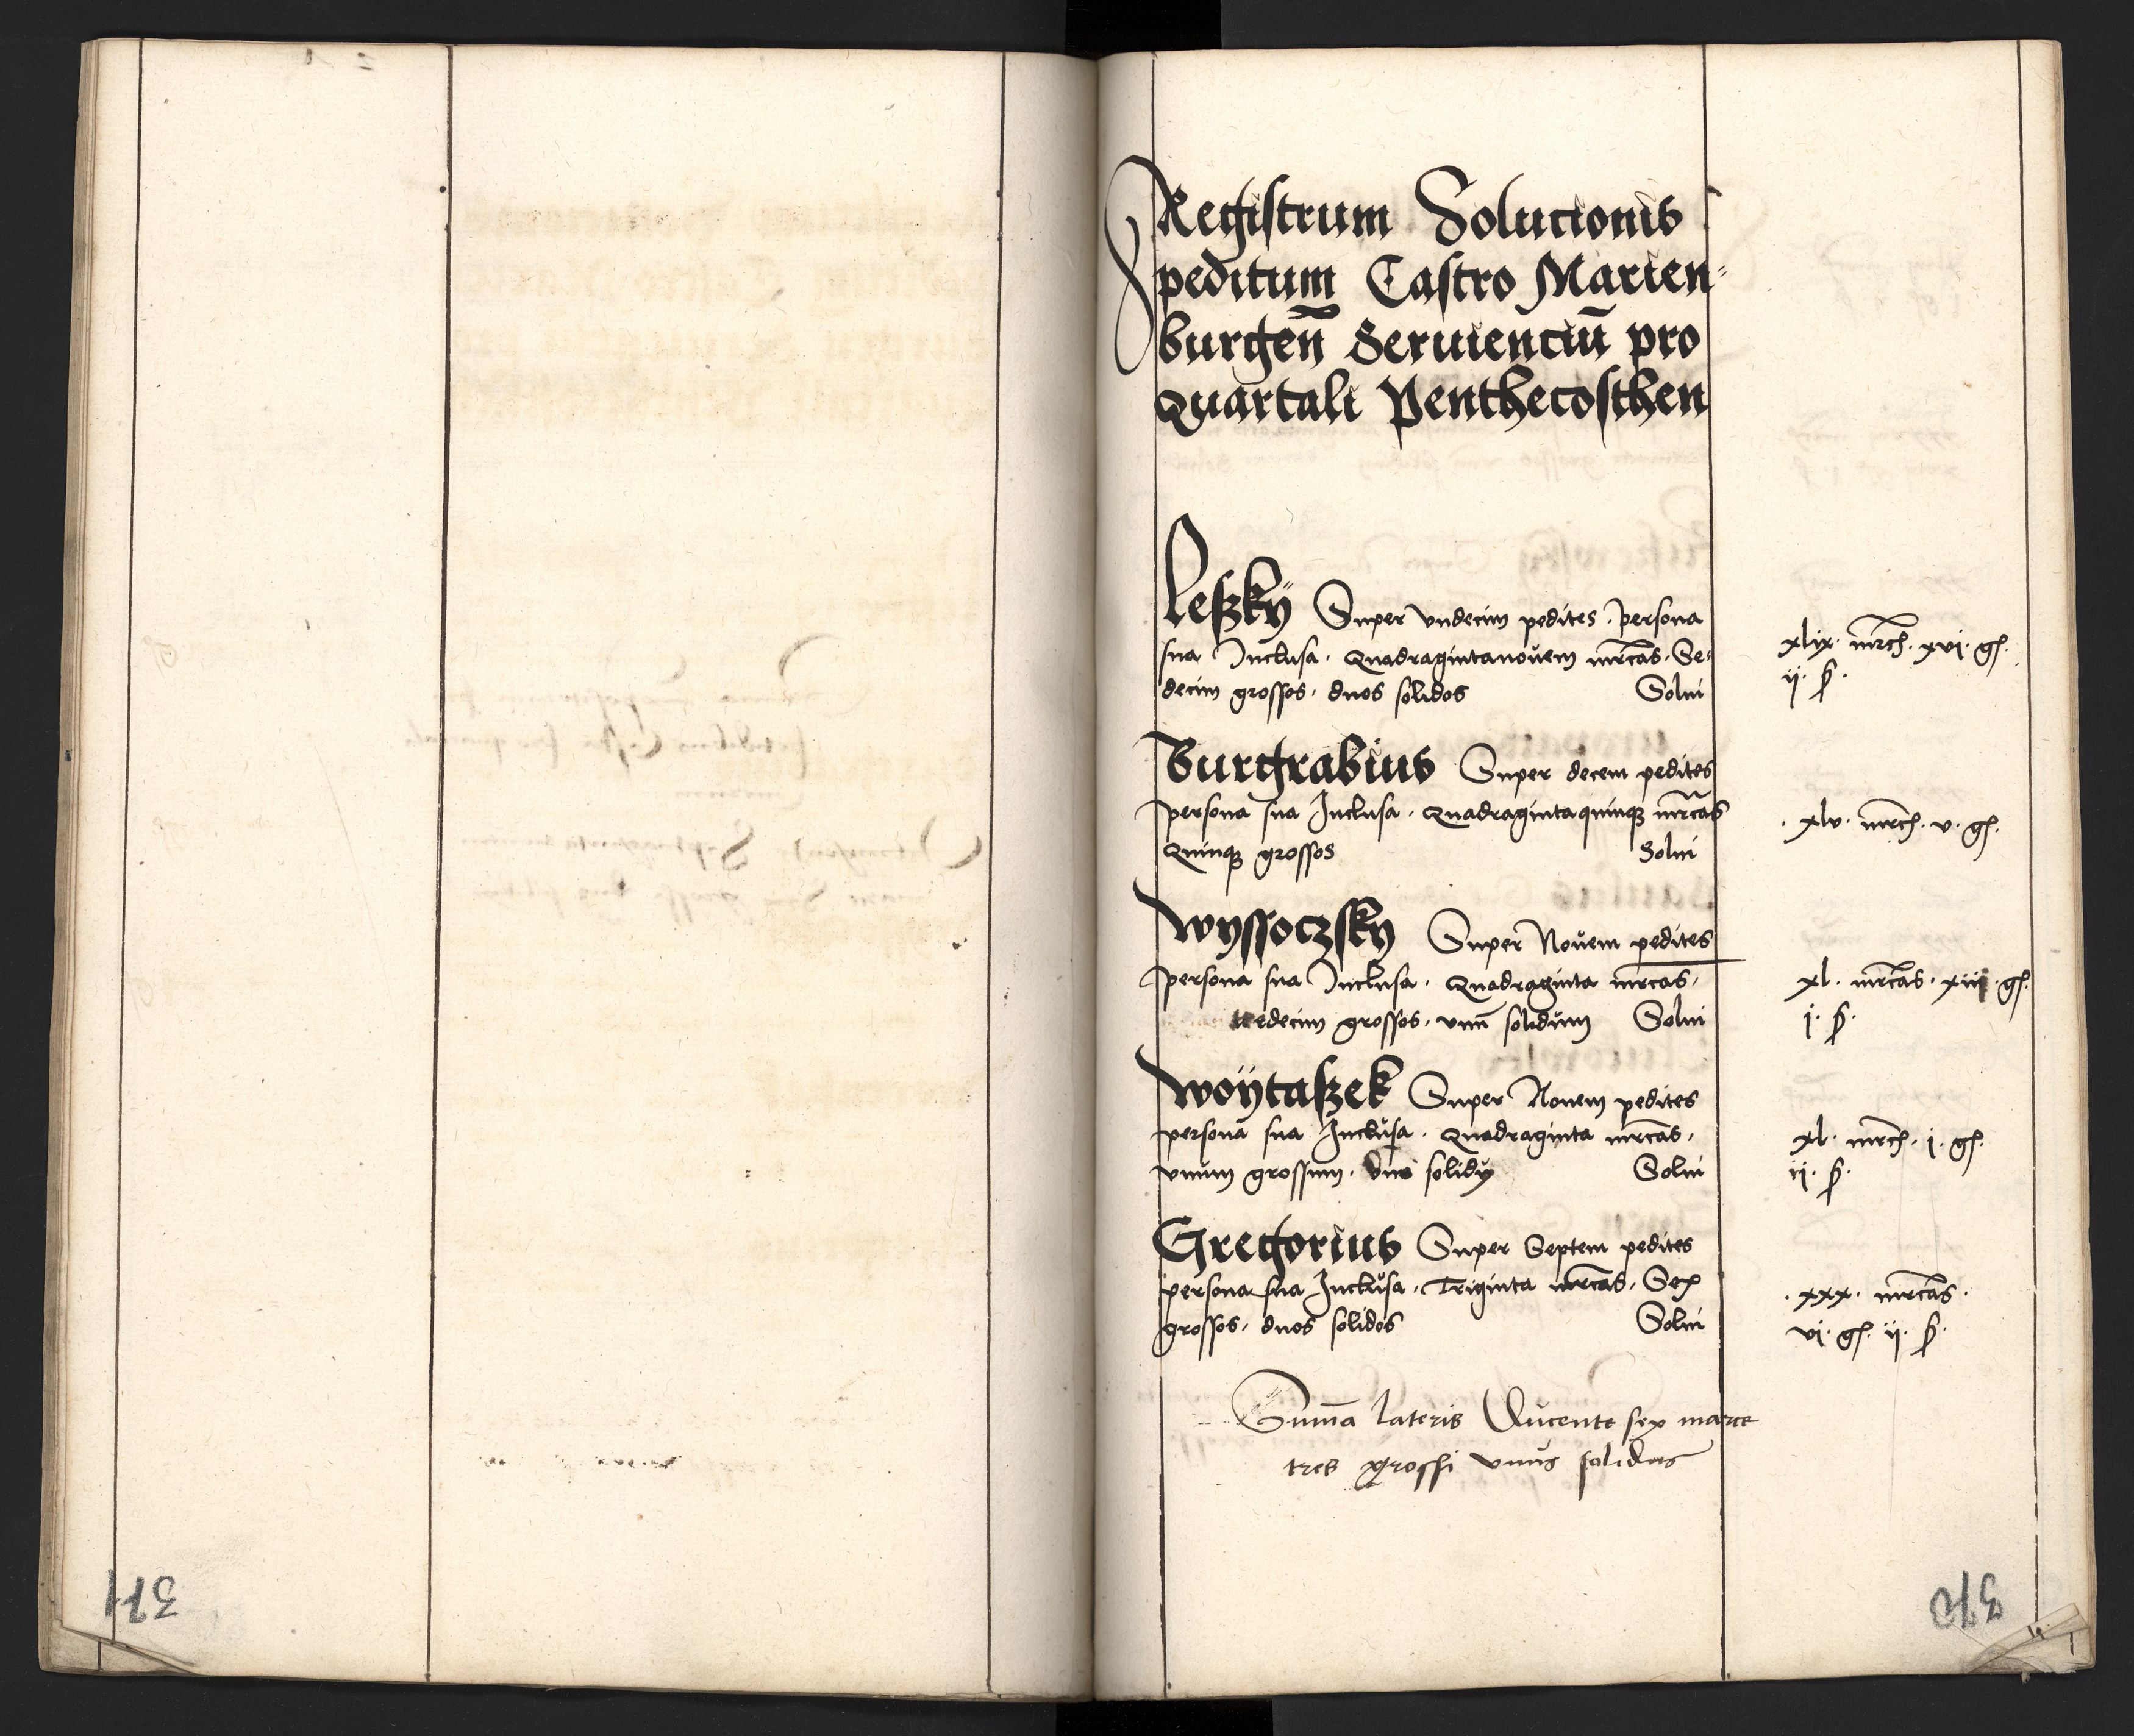 Registrum Solucionis
peditum Castro Marien-
burgen̄ Seruienciū pro
Quartali Penthecosthen
Leszkÿ Super vndecim pedites. persona
sua Inclusa. Quadragintanouem mrcas. Se-
decim grossos. duos solidos Solui
xlix. mrch. xvi. gs.
ij. s.
Burgrabius Super decem pedites
persona sua Inclusa. Quadragintaquinqз mrcas
Quinqз grossos Solui
. xlv. mrch. v. gs.
Wyssoczsky Super Nouem pedites
persona sua Inclusa. Quadraginta mrcas.
tredecim grossos. vnū solidum Solui
xl. mrcas. xiij. gs.
j. s.
Woÿtaszek Super Nouem pedites
persona sua Inclusa. Quadraginta mrcas.
vnum grossum. duo solidy Solui
xl. mrch. i. gs.
ii. s.
Gregorius Super Septem pedites
persona sua Inclusa. Triginta mrcas. Sex
grossos. duos solidos Solui
. xxx. mrcas.
vi. gs. ij. s.
Suma lateris Ducente sex marce
tres grossi vnus solidus
371
370